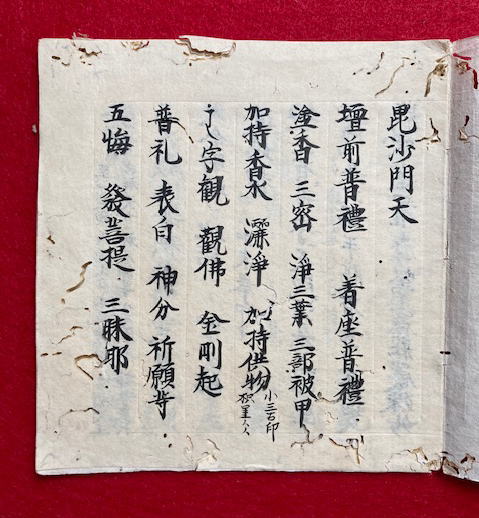 毘沙門天
壇前普禮 着座普禮
塗香 三密 淨三業 三部被甲
加持香水 灑淨 加持供物 小三古印
字観 觀佛 金剛起
普礼 表白 神分 祈願等
五悔 發菩提 三昧耶